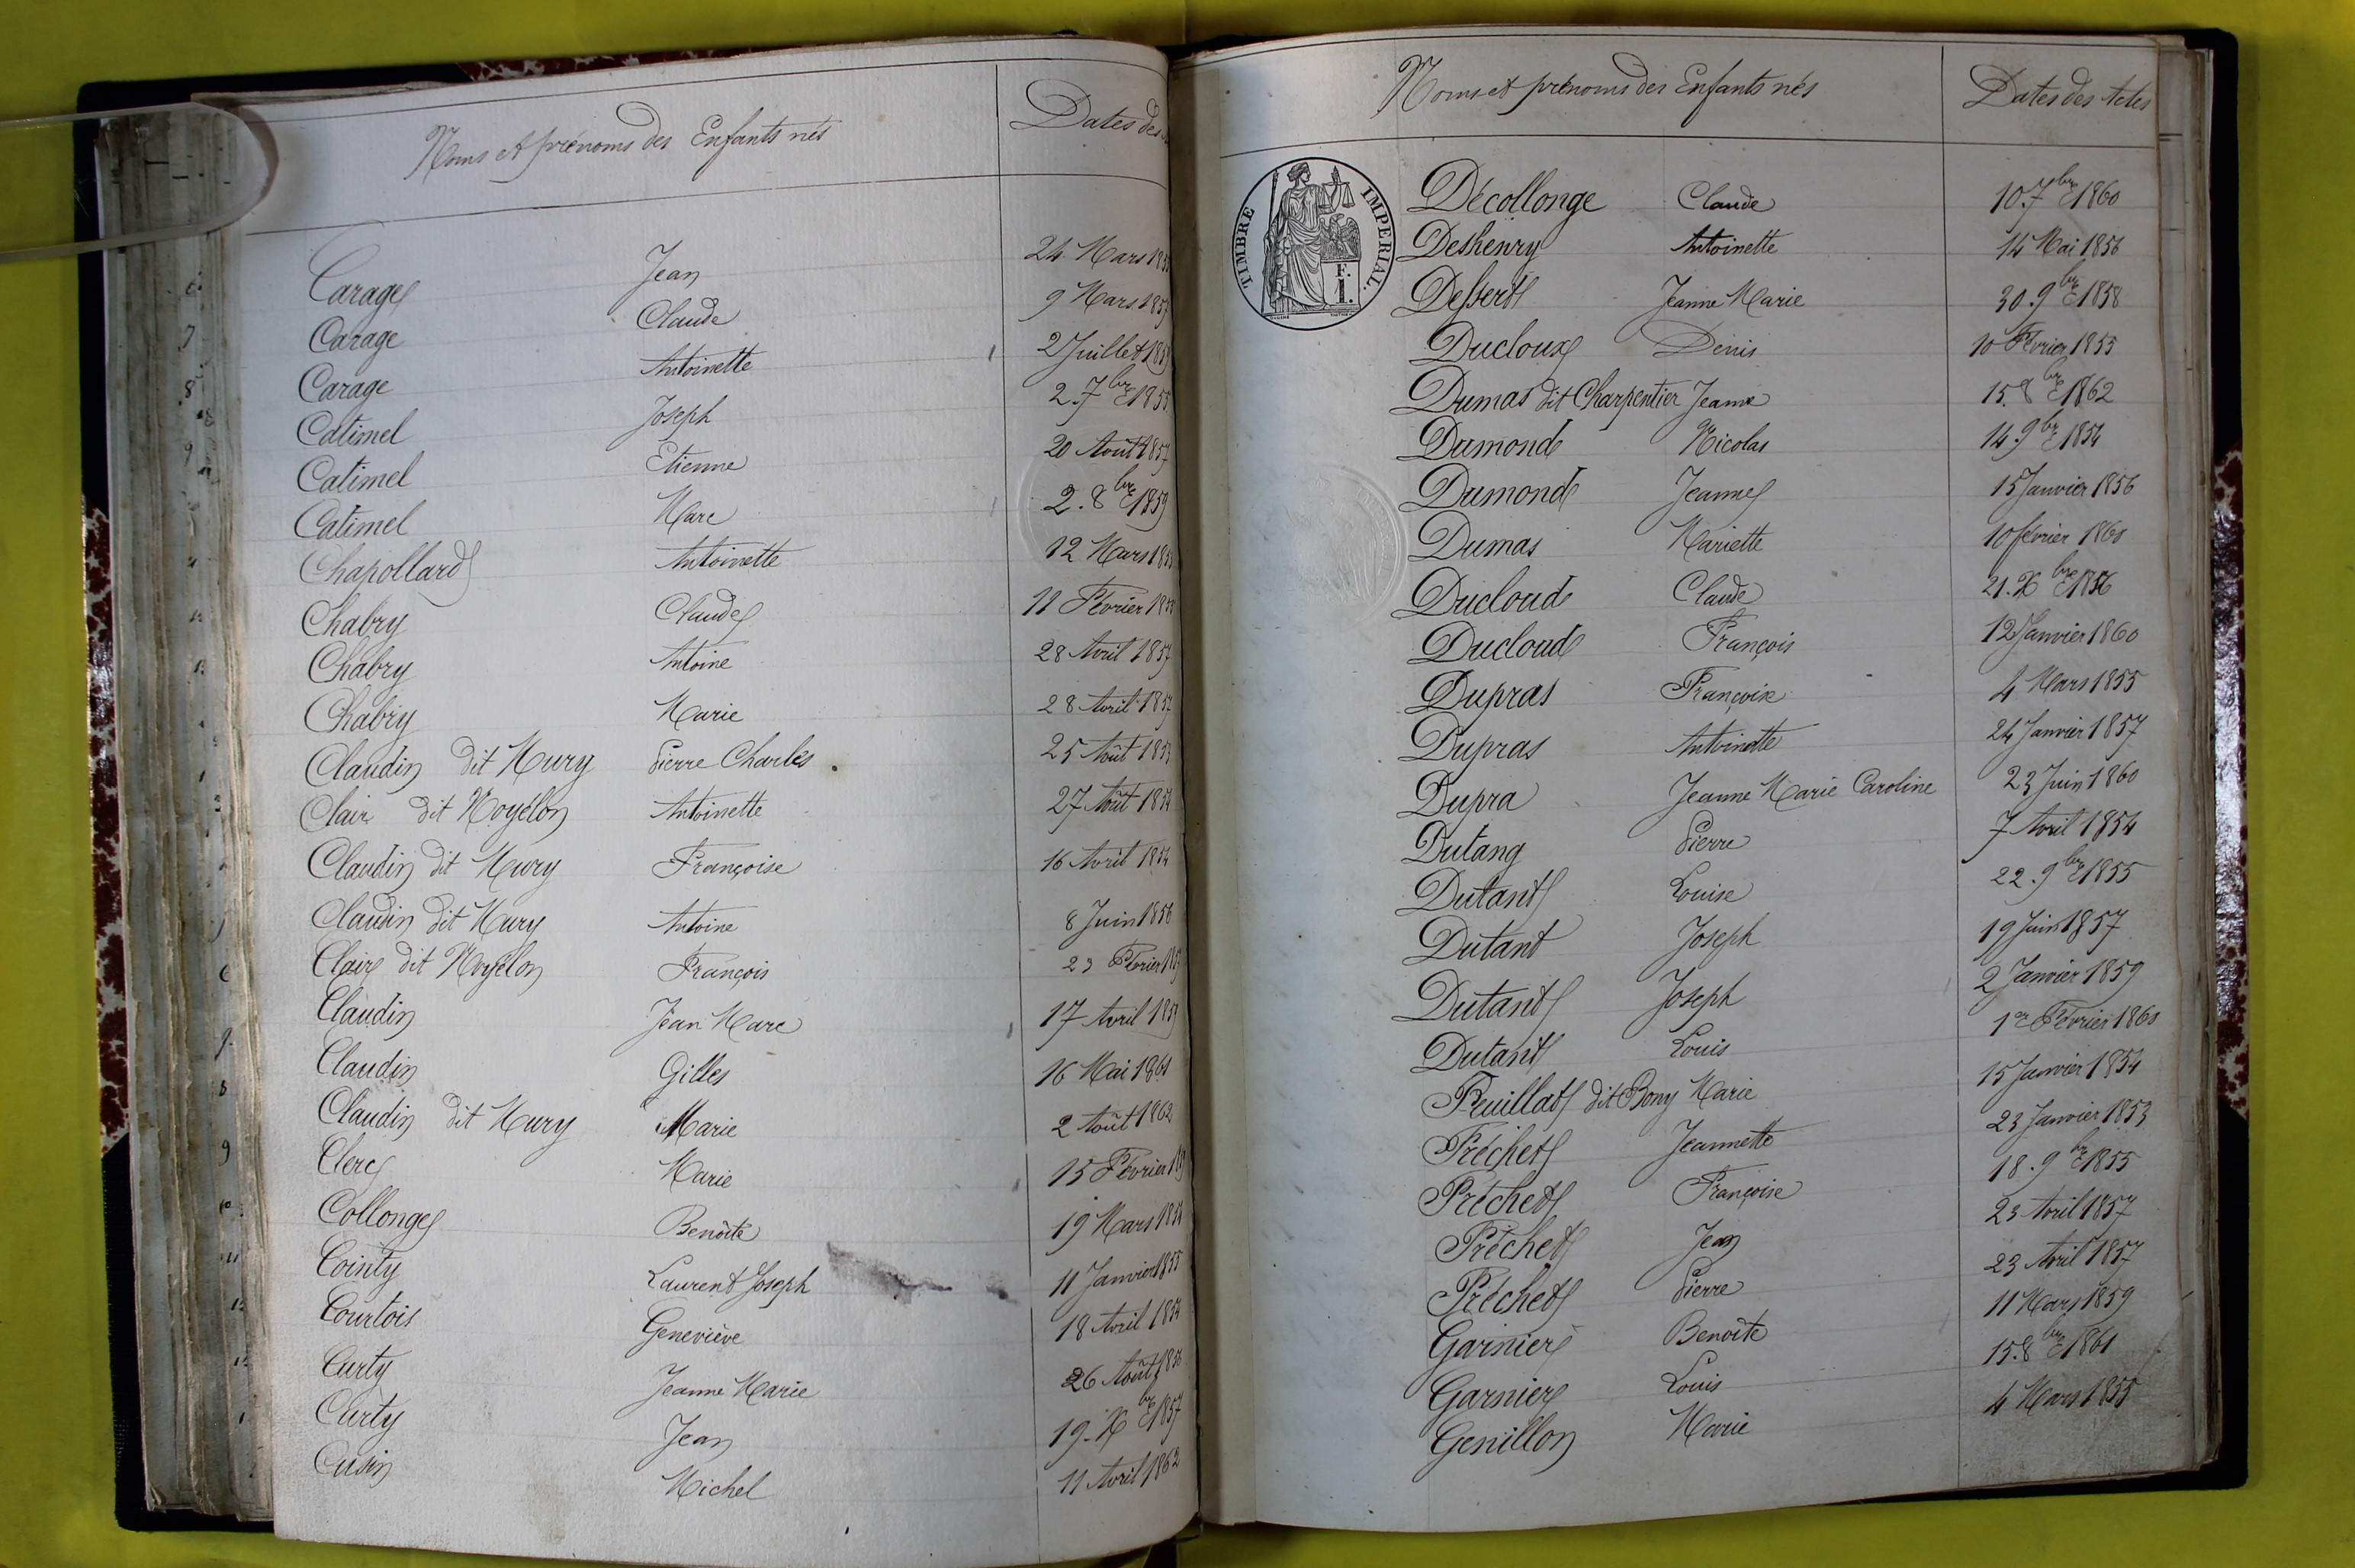 Noms et prénoms des Enfants nés Dates des
Carage Jean 24 Mars
Carage Claude 9 Mars 1857
Carage Antoinette 2 Juillet 1859
Catimel Joseph 2. 7bre 1855
Catimel Etienne 20 Août 1857
Catimel Marc 2. 8bre 1859
Chapollard Antoinette 12 Mars
Chabry Claude 11 Février
Chabry Antoine 28 Avril 1857
Chabry Marie 28 Avril 1857
Claudin dit Mury Pierre Charles 25 Août 1853
Clair dit Noyélon Antoinette 27 Août 1854
Claudin dit Mury Françoise 16 Avril 1854
Claudin dit Mury Antoine 8 Juin 1856
Clair dit Noyélon François 23 Février
Claudin Jean Marc 17 Avril 1859
Claudin Gilles 16 Mai 1861
Claudin dit Mury Marie 2 Août 1862
Clerc Marie 15 Février
Collonge Benoîte 19 Mars 1854
Cointy Laurent Joseph 11 Janvier 1855
Courtois Geneviève 18 Avril 1854
Curty Jeanne Marie 26 Août
Curty Jean 19. Xbre 1857
Cusin Michel 11 Avril 1862
Noms et prénoms des Enfants nés Dates des Actes
TIMBRE IMPERIAL.
F.
I.
Décollonge Claude 10. 7bre 1860
Deshenry Antoinette 14 Mai 1856
Dessert Jeanne Marie 30. 9bre 1858
Ducloux Denis 10 Février 1855
Dumas dit Charpentier Jeanne 15. 8bre 1862
Dumond Nicolas 14. 9bre 1854
Dumond Jeanne 15 Janvier 1856
Dumas Mariette 10 février 1860
Ducloud Claude 21. Xbre 1856
Ducloud François 12 Janvier 1860
Dupras Françoise 4 Mars 1855
Dupras Antoinette 24 Janvier 1857
Dupra Jeanne Marie Caroline 23 Juin 1860
Dutang Pierre 7 Avril 1854
Dutant Louise 22. 9bre 1855
Dutant Joseph 19 Juin 1857
Dutant Joseph 2 Janvier 1859
Dutant Louis 1er Février 1860
Feuillat dit Bony Marie 15 Janvier 1854
Fréchet Jeannette 23 Janvier 1853
Fréchet Françoise 18. 9bre 1855
Fréchet Jean 23 Avril 1857
Fréchet Pierre 23 Avril 1857
Garnier Benoîte 11 Mars 1859
Garnier Louis 15. 8bre 1861
Genillon Marie 4 Mars 1855